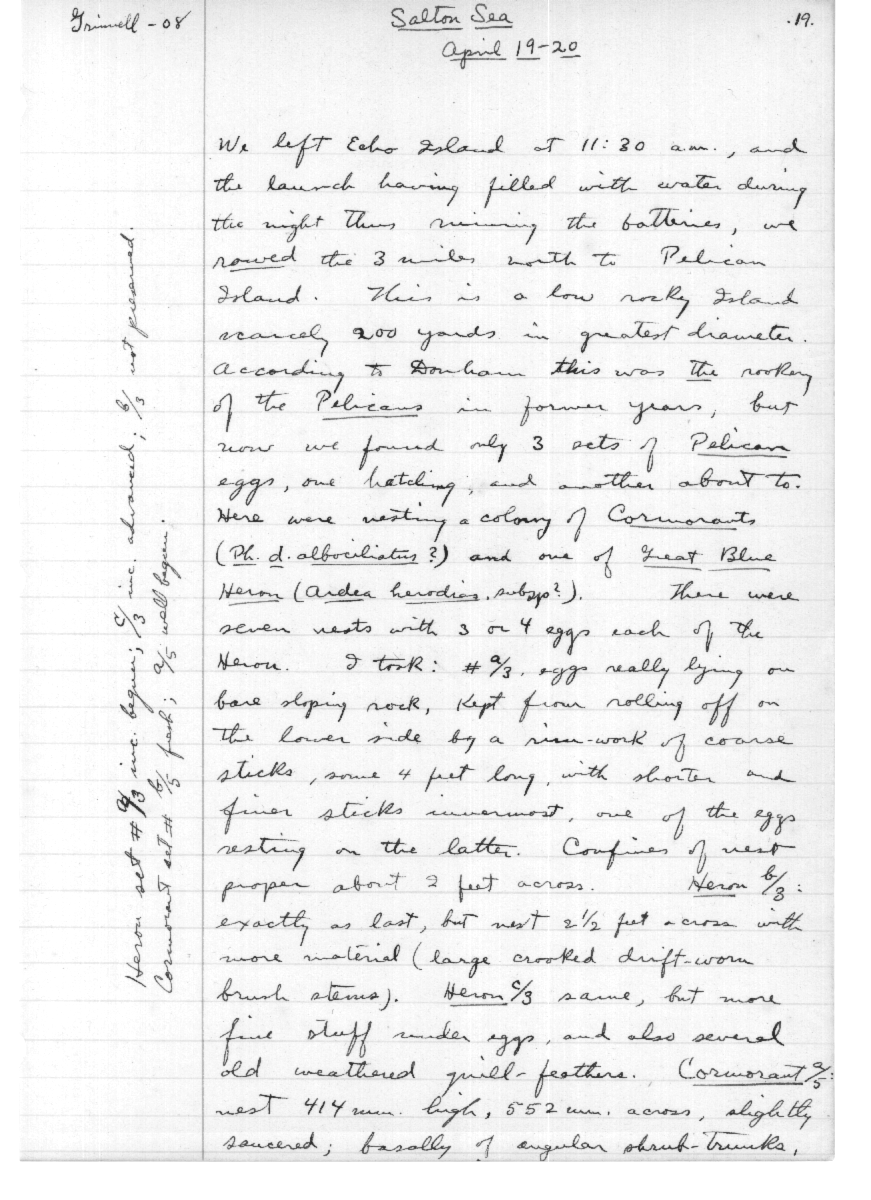 Grinnell - 08
Salton Sea
19.
April 19-20
We left Echo Island at 11:30 a.m., and
the launch having filled with water during
the night thus ruining the batteries, we
rowed the 3 miles north to Pelican
Island. This is a low rocky Island
scarcely 200 yards in greatest diameter.
According to Donham this was the rookery
of the Pelicans in former years, but
now we found only 3 sets of Pelican
eggs, one hatching, and another about to.
Here were nesting a colony of Cormorants
(Ph. d. albociliatus ?) and one of Great Blue
Heron (Ardea herodias, subsp?). There were
seven nests with 3 or 4 eggs each of the
Heron. I took: # a/3, eggs really lying on
bare sloping rock, kept from rolling off on
the lower side by a rim-work of coarse
sticks, some 4 feet long, with shorter and
finer sticks innermost, one of the eggs
resting on the latter. Confines of nest
proper about 2 feet across. Heron b/3:
exactly as last, but nest 2 1/2 feet across with
more material (large crooked drift-worn
brush stems). Heron c/3 same, but more
fine stuff under eggs, and also several
old weathered quill-feathers. Cormorant a/5:
nest 414 mm. high, 552 mm. across, slightly
saucered; basally of angular shrub-trunks,
Heron set # a/3 inc. begun; c/3 inc. advanced; b/3 not preserved.
Cormorant set # b/5 fresh; a/5 well begun.